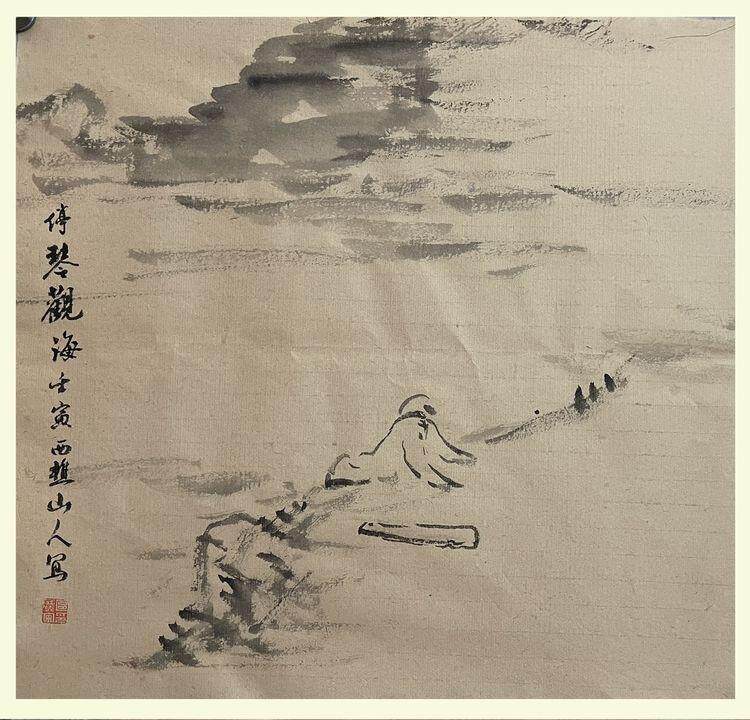 停琴觀海壬寅西樵山人寫